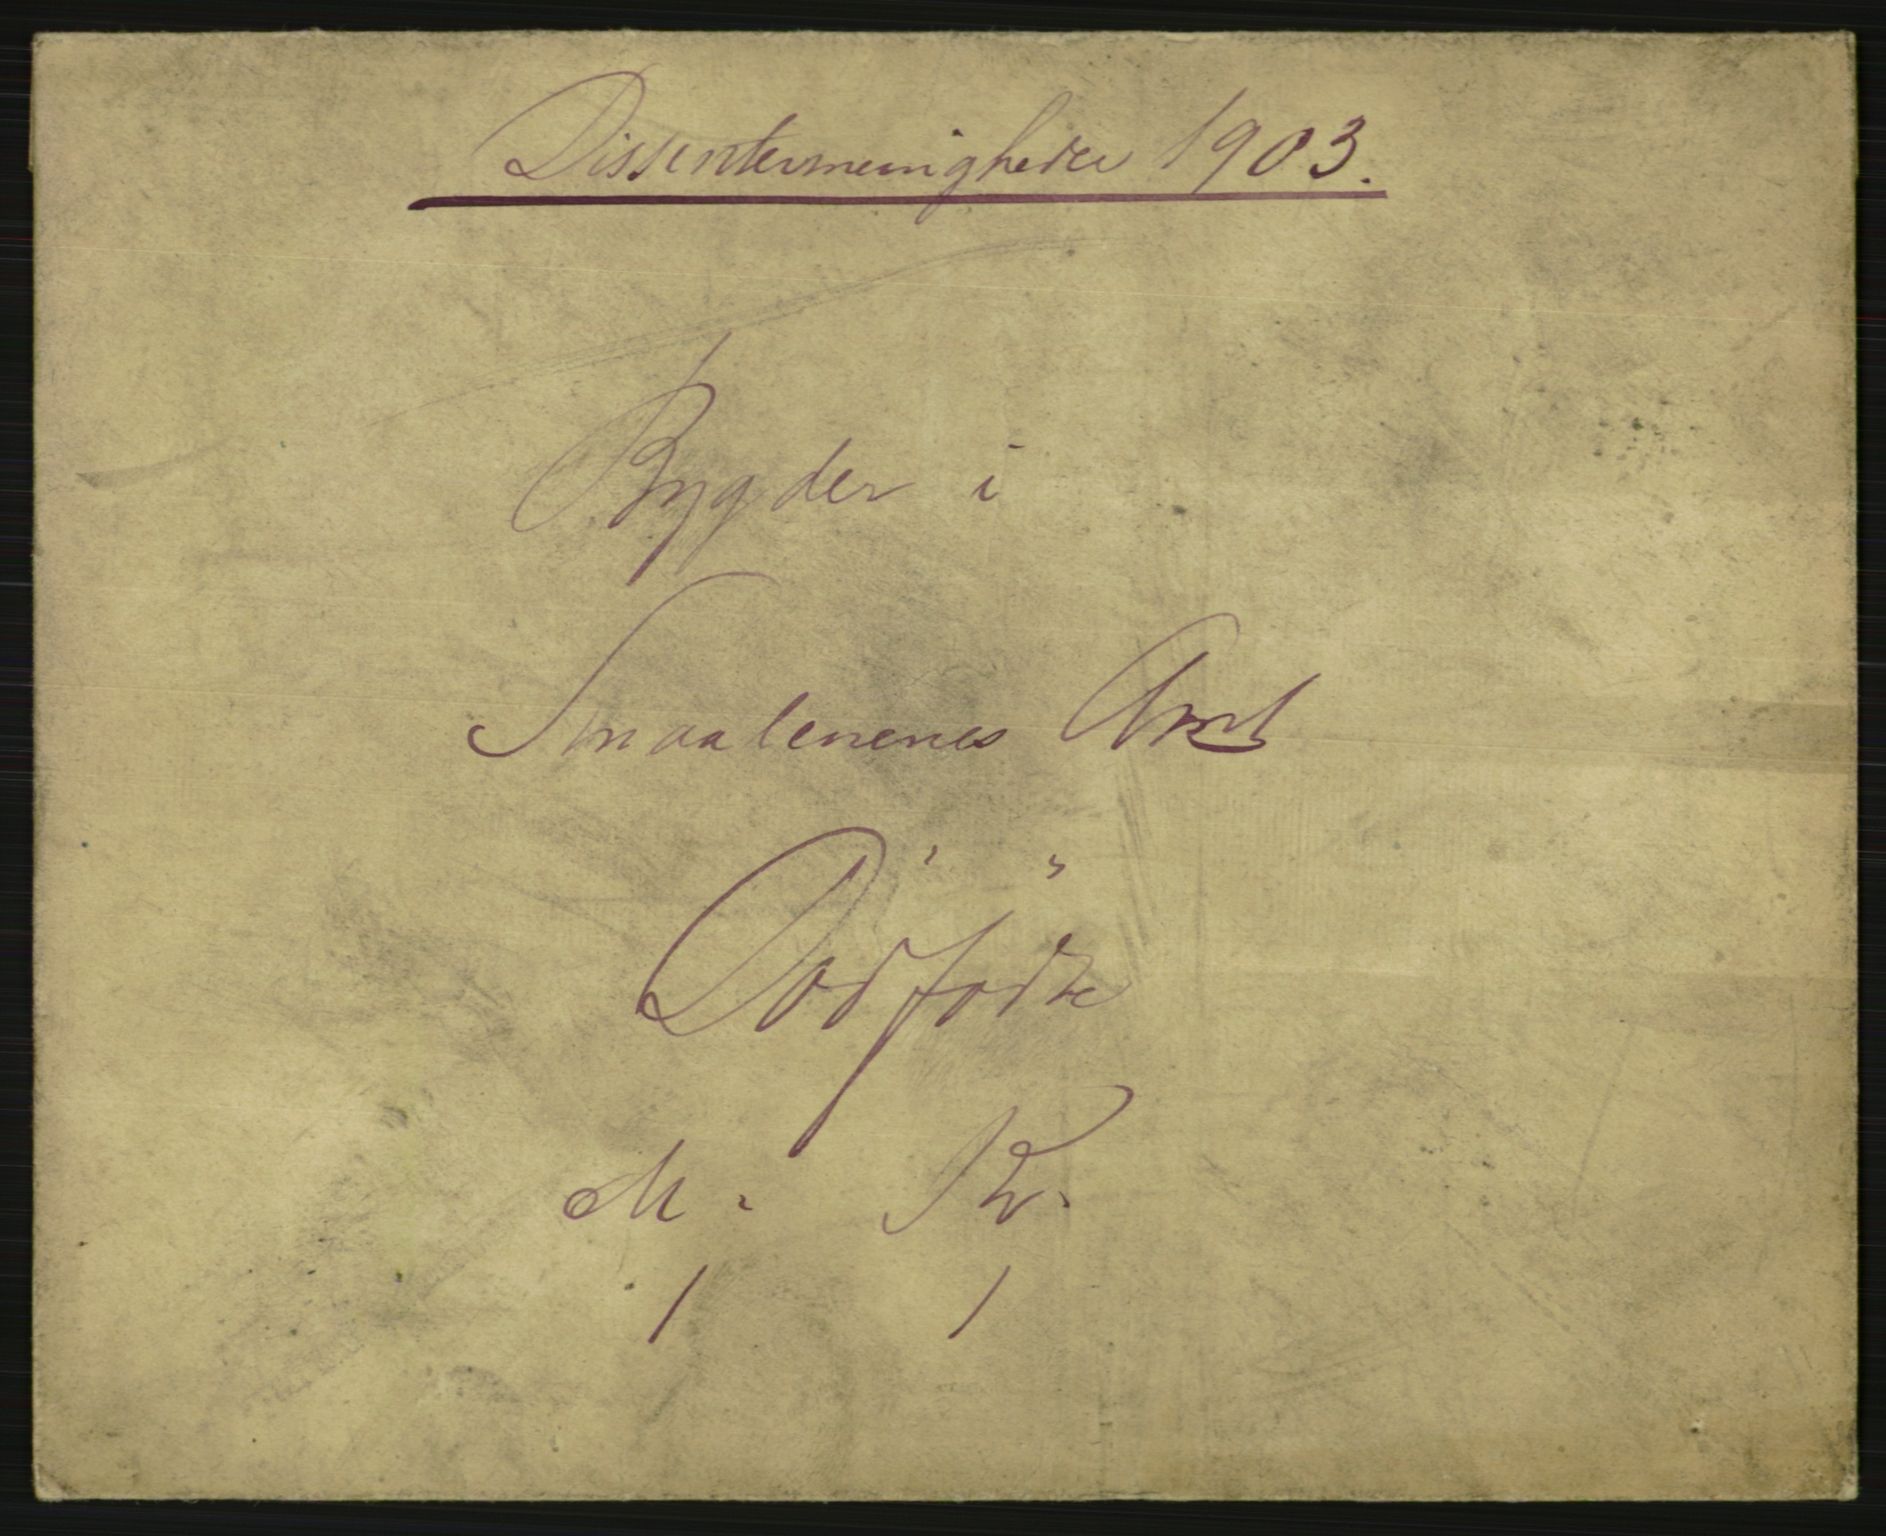 Dissentermenigheder 1903.
Bygder i
Smaalenenes Amt
Dödfödte
M. Kv.
1 1